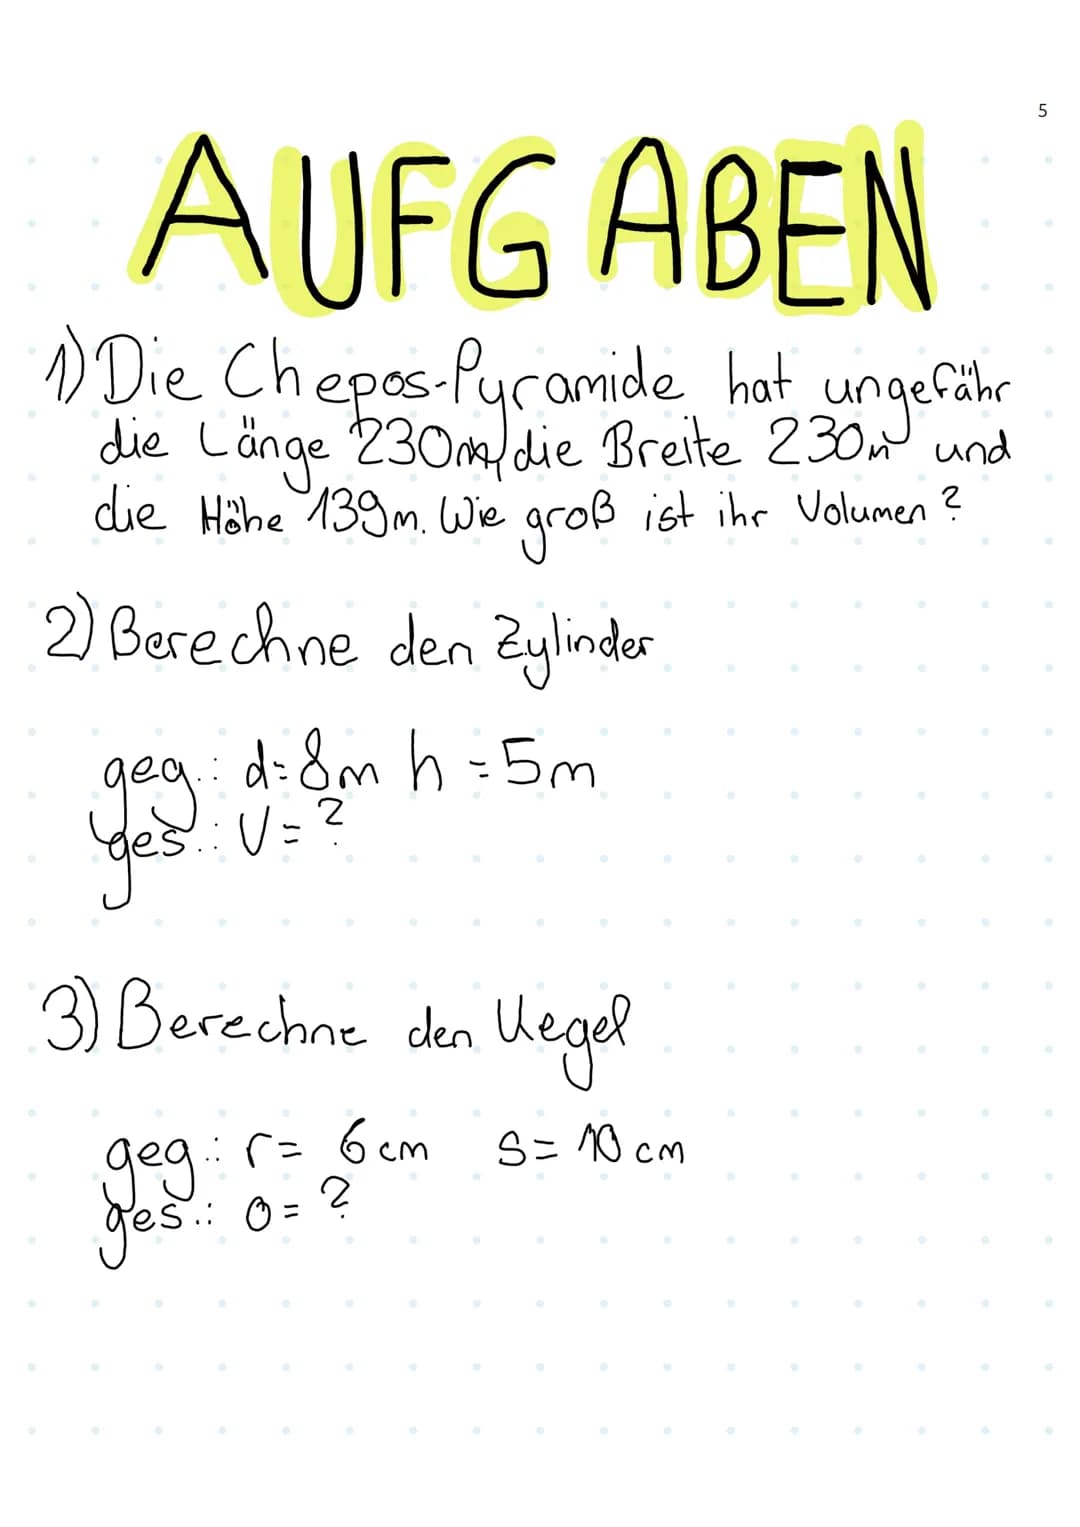 5
AUFGABEN
1) Die Chepos-Pyramide hat ungefähr
die Länge 230m, die Breite 230m und
die Höhe 139m. Wie groß ist ihr Volumen?
2) Berechne den Zylinder
geg.: d=8m h=5m
ges.: V=?
3) Berechne den Kegel
geg.: r= 6cm s= 10cm
ges.: O=?